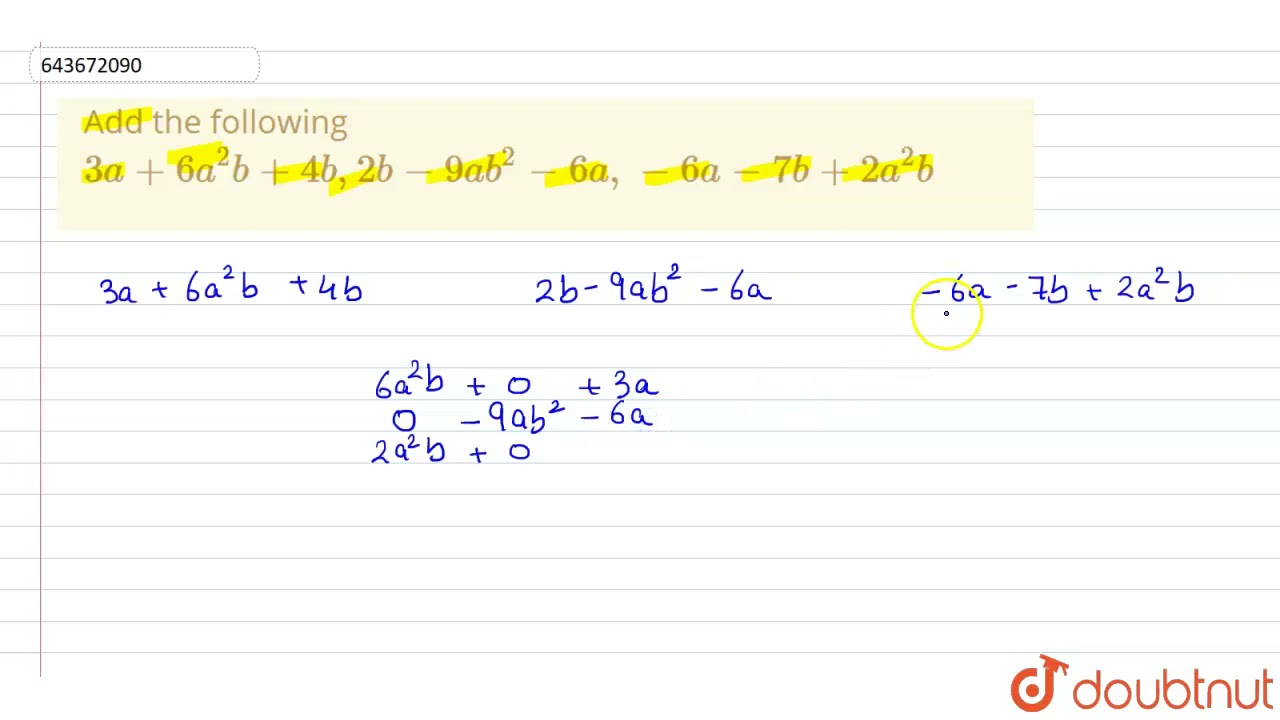 643672090
Add the following
3a + 6a²b + 4b, 2b − 9ab² − 6a, − 6a − 7b + 2a²b
3a + 6a²b + 4b 2b - 9ab² - 6a - 6a - 7b + 2a²b
6a²b + 0 + 3a
0 - 9ab² - 6a
2a²b + 0
doubtnut